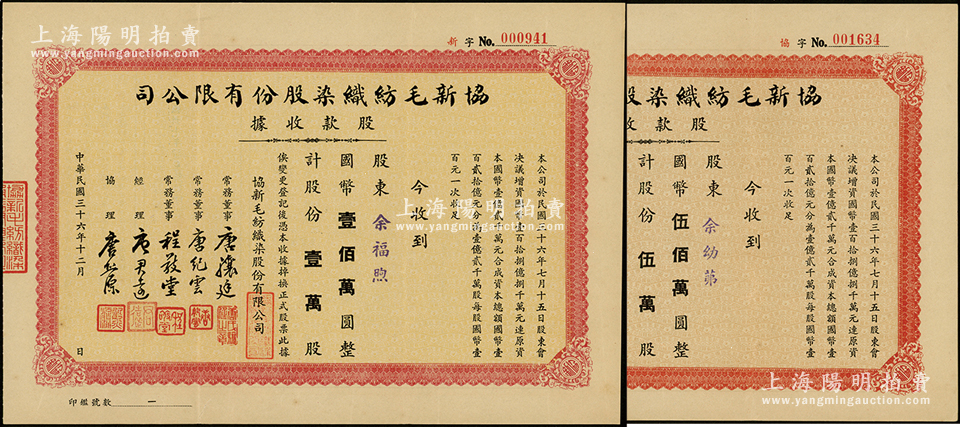 上海陽明拍賣
www.yangmingauction.com
新 字 No. 000941
協新毛紡織染股份有限公司
股款收據
本公司於民國三十六年七月十五日股東會
決議增資國幣壹百拾捌億捌千萬元連原資
本國幣壹億貳千萬元合成資本總額國幣壹
百貳拾億元分為壹億貳千萬股每股國幣壹
百元一次收足
今收到
股東 余福煦
國幣 壹佰萬 圓整
計股份 壹萬 股
俟變更登記後憑本收據掉換正式股票此據
協新毛紡織染股份有限公司
常務董事 唐驤廷
常務董事 唐紀雲
常務董事 程敬堂
經理 唐君遠
協理
中華民國三十六年十二月 日
印鑑號數 一
協 字 No. 001634
協新毛紡織染股
股款收
本公司於民國三十六年七月十五日股東會
決議增資國幣壹百拾捌億捌千萬元連原資
本國幣壹億貳千萬元合成資本總額國幣壹
百貳拾億元分為壹億貳千萬股每股國幣壹
百元一次收足
今收到
股東 余幼弟
國幣 伍佰萬 圓整
計股份 伍萬 股
上海陽明拍賣
www.yangmingauction.com